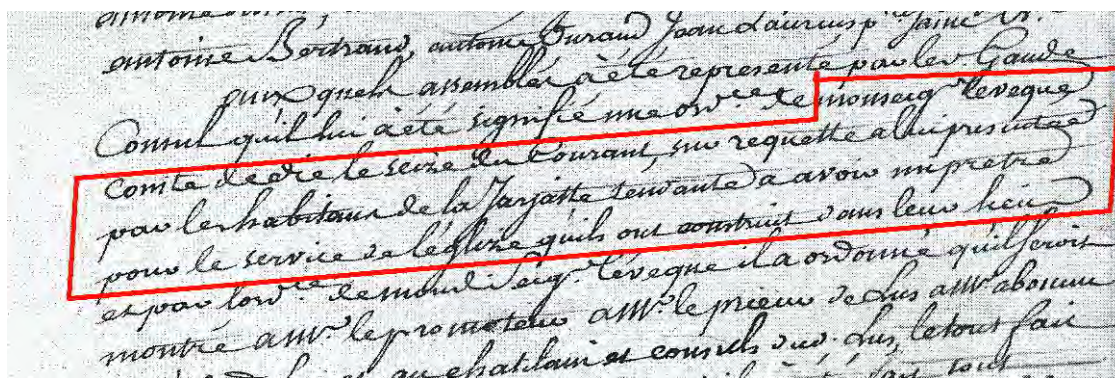 antoine Bertrand, antoine Durand Jean Laurens p.
quels assemblés à été representé par le Sr Gaude
Consul quil lui à été signifié une ord.ce de monseig.r leveque
comte de die le seize du Courant, sur requette a lui presentée
par les habitans de la Jarjatte tendante a avoir un pretre
pour le service de léglize quils ont construit dans leur lieu
et par lord.ce de mond. Seig.r lévéque il a ordonné quil seroit
montré a Mr. le promoteur a Mr. le prieur de Lus a Mr abonnu
chatelain et consuls dud. Lus, le tout fait